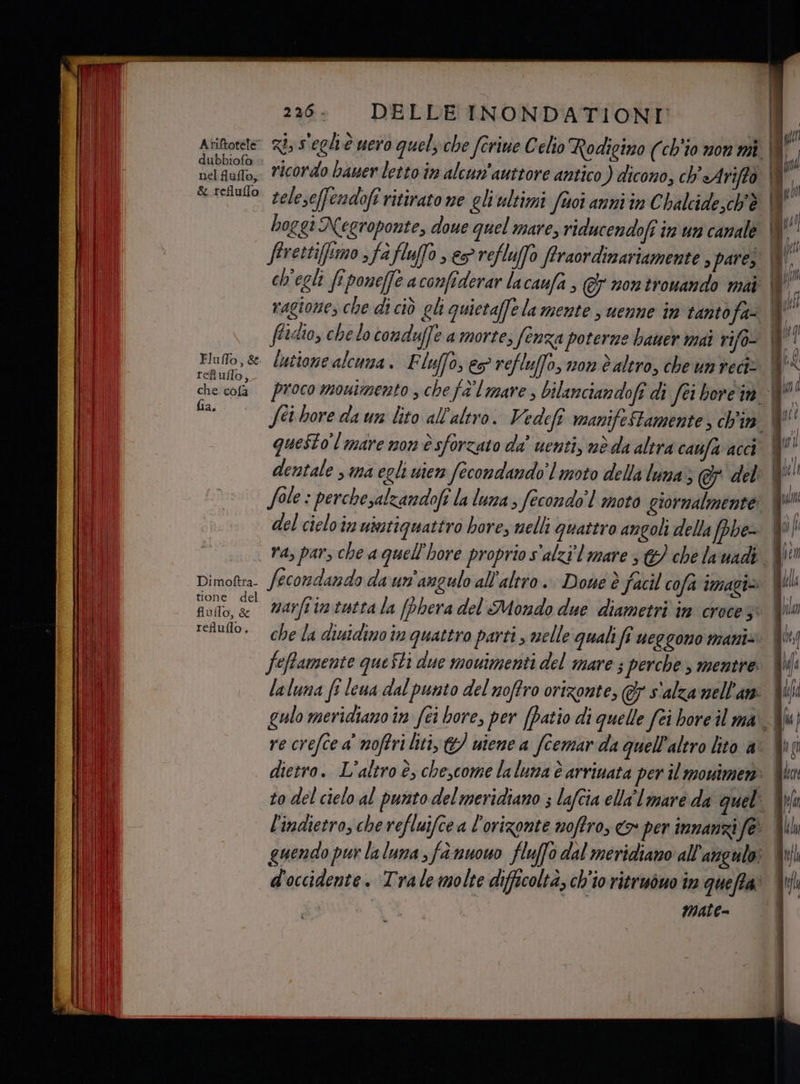 226. DELLE INONDATIONI
Aristotele
dubbioso
nel flusso,
& reflusso
zi, s'egli è uero quel, che scriue Celio Rodigino (ch'io non mi
ricordo hauer letto in alcun'auttore antico) dicono, ch'Aristo
tele, essendosi ritirato ne gli ultimi suoi anni in Chalcide, ch'è
hoggi Negroponte, doue quel mare, riducendosi in un canale
strettissimo, fà flusso, & reflusso straordinariamente, pare,
ch'egli si ponesse a considerar la causa, & non trouando mai
ragione, che di ciò gli quietasse la mente, uenne in tanto fa-
stidio, che lo condusse a morte, senza poterne hauer mai riso-
Flusso, &
reflusso,
che cosa
sia.
lutione alcuna. Flusso, & reflusso, non è altro, che un reci-
proco mouimento, che fa'l mare, bilanciandosi di sei hore in
sei hore da un lito all'altro. Vedesi manifestamente, ch'in
questo'l mare non è sforzato da' uenti, nè da altra causa acci
dentale, ma egli uien secondando'l moto della luna, & del
sole: perche, alzandosi la luna, secondo'l moto giornalmente
del cielo in uintiquattro hore, nelli quattro angoli della sphe-
ra, par, che a quell'hore proprio s'alzi'l mare, & che la uadi
Dimostra-
tione del
flusso, &
reflusso.
secondando da un'angulo all'altro. Doue è facil cosa imagi-
narsi in tutta la sphera del Mondo due diametri in croce,
che la diuidino in quattro parti, nelle quali si ueggono mani-
festamente questi due mouimenti del mare; perche, mentre
la luna si leua dal punto del nostro orizonte, & s'alza nell'an
gulo meridiano in sei hore, per spatio di quelle sei hore il ma
re cresce a' nostri liti, & uiene a scemar da quell'altro lito a
dietro. L'altro è, che, come la luna è arriuata per il mouimen
to del cielo al punto del meridiano; lascia ella'l mare da quel
l'indietro, che refluisce a l'orizonte nostro, & per innanzi se
guendo pur la luna, fà nuouo flusso dal meridiano all'angulo
d'occidente. Tra le molte difficoltà, ch'io ritruouo in questa
mate-